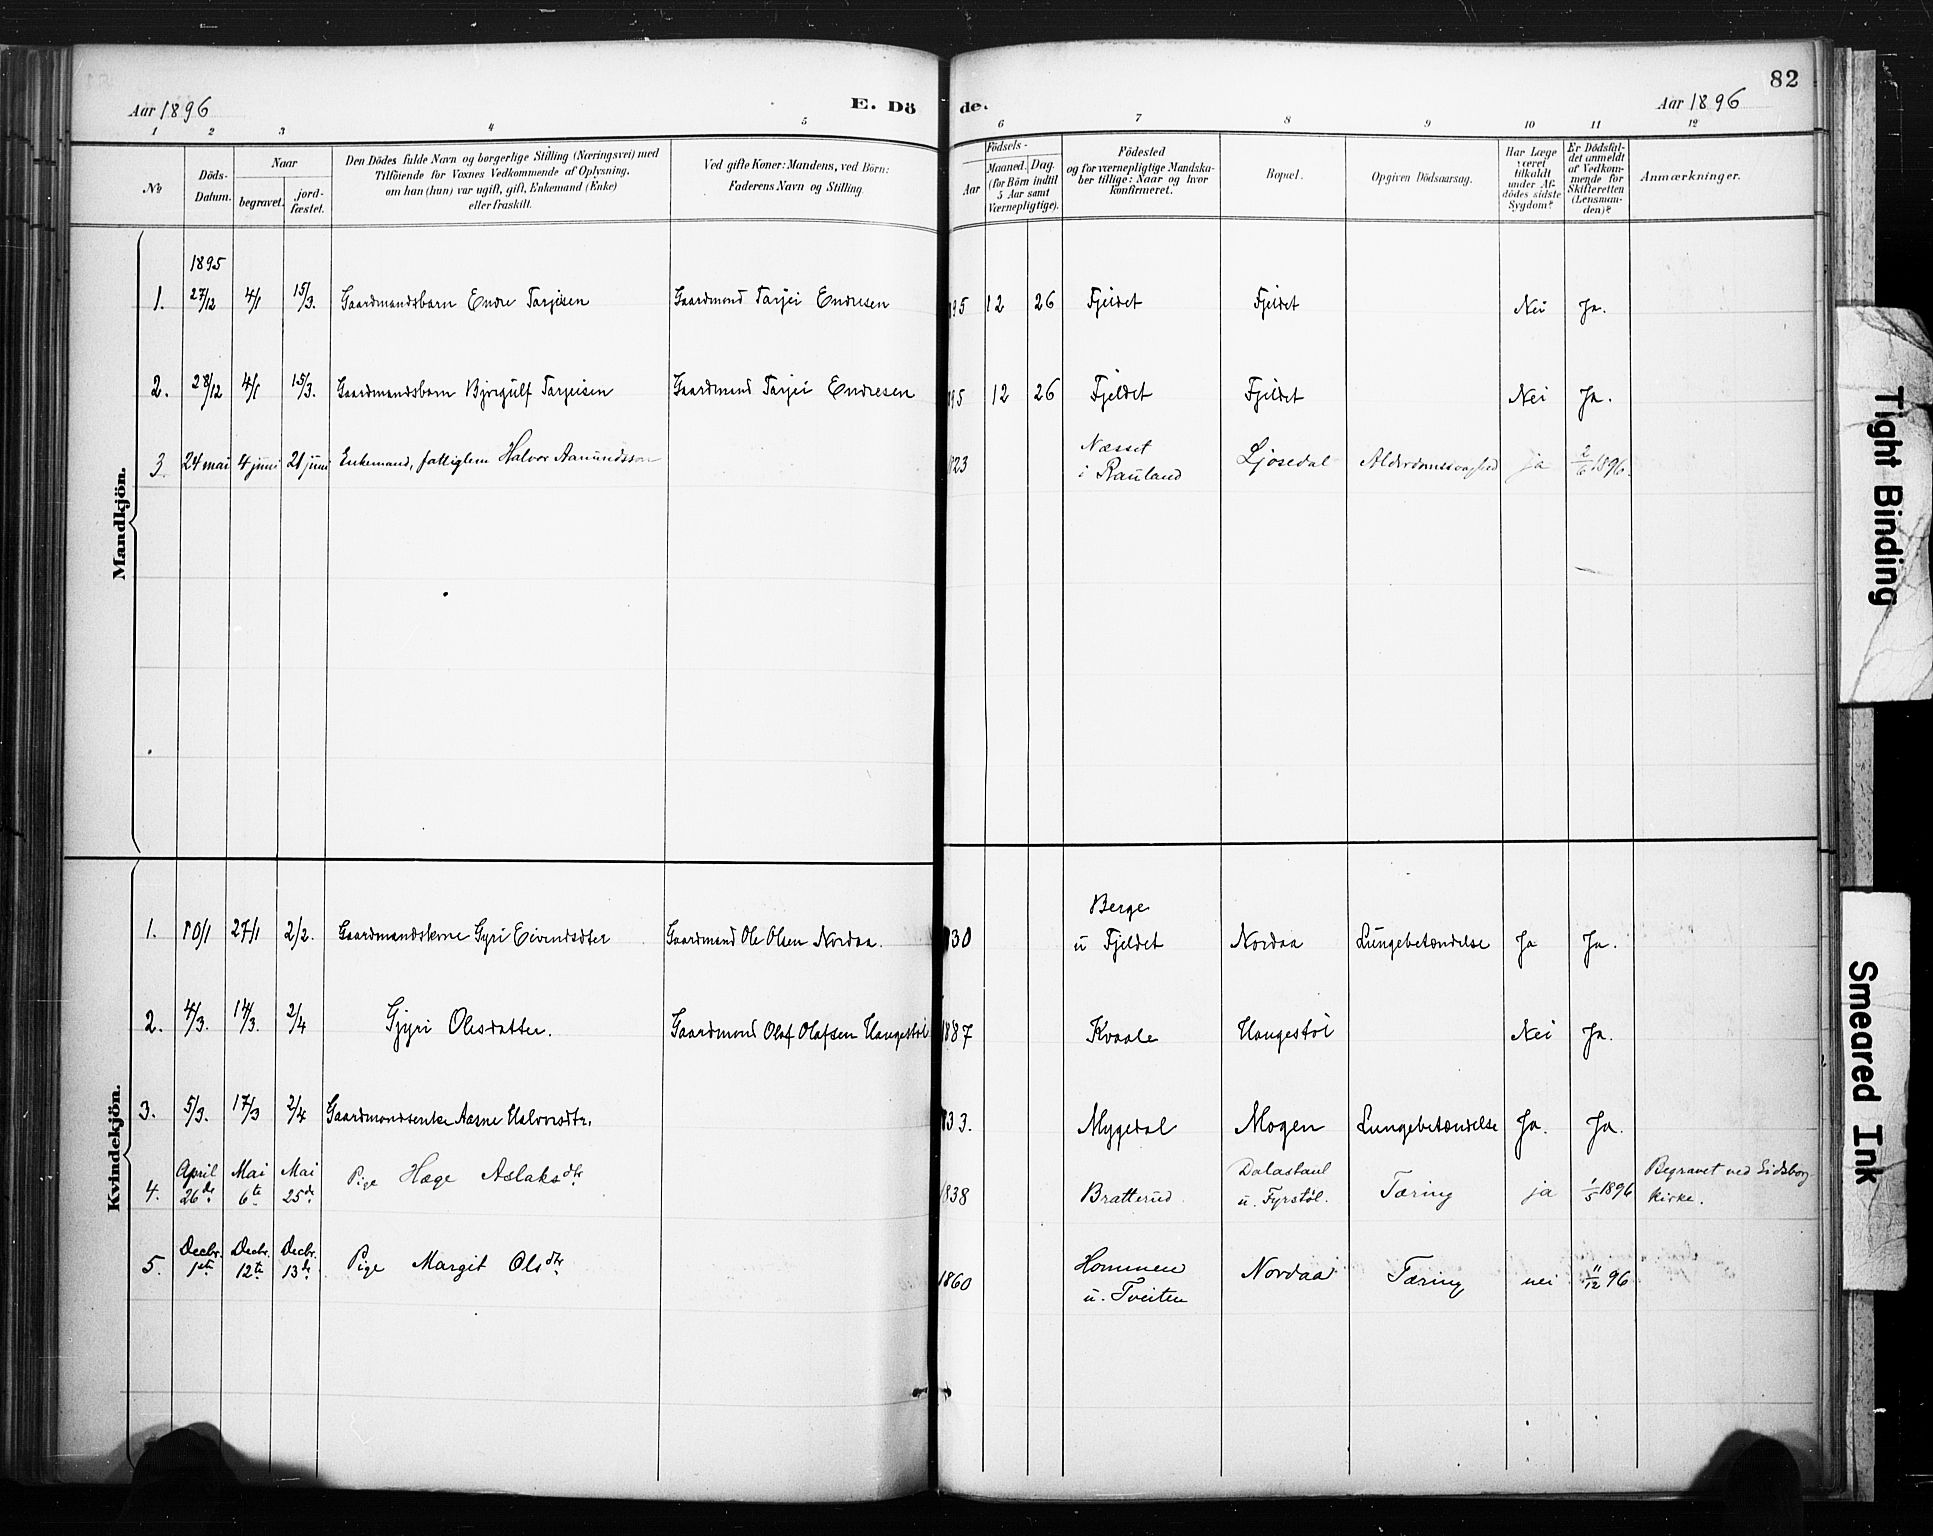 82
Aar 1896 E. Dö de. Aar 1896
1 2 3 4 5 6 7 8 9 10 11 12
No
Döds-
Datum.
Naar
begravet.
jord-
fæstet.
Den Dödes fulde Navn og borgerlige Stilling (Næringsvei) med
Tilföiende for Voxnes Vedkommende af Oplysning,
om han (hun) var ugift, gift, Enkemand (Enke)
eller fraskilt.
Ved gifte Koner: Mandens, ved Börn:
Faderens Navn og Stilling.
Födsels-
Aar
Maaned. Dag.
(for Börn indtil
5 Aar samt
Værnepligtige).
Födested
og for værnepligtige Mandska-
ber tillige: Naar og hvor
konfirmeret.
Bopæl.
Opgiven Dödsaarsag.
Har Læge
været
tilkaldt
under Af-
dödes sidste
Sygdom?
Er Dödsfal-
det anmeldt
af Vedkom-
mende for
Skifteretten
(Lensman-
den)?
Anmærkninger.
Mandkjön.
1895
1. 27/12 4/1 15/3. Gaardmandsbarn Endre Tarjeisen Gaardmand Tarjei Endresen 895 12 26 Fjeldet Fjeldet Nei Ja.
2. 28/12 4/1 15/3. Gaardmandsbarn Bjørgulf Tarjeisen Gaardmand Tarjei Endresen 895 12 26 Fjeldet Fjeldet Nei Ja.
3. 24 mai 4 juni 21 juni Enkemand, fattiglem Halvor Aamundsson 823 Næsset
i Rauland Ljosedal Alderdomssvaghed ja 2/6 1896.
Kvindekjön.
1. 10/1 27/1 2/2. Gaardmandskone Gyri Eivendsdter Gaardmand Ole Olsen Nordaa. 830 Berge
u Fjeldet Nordaa Lungebetændelse Ja Ja.
2. 4/3. 14/3. 2/4 Gjyri Olesdatter. Gaardmand Olaf Olafsen Haugestøl 1887 Kvaale Haugestøl Nei Ja.
3. 5/3. 17/3 2/4 Gaardmandsenke Aasne Halvorsdtr. 833. Mygedal Mogen Lungebetændelse Ja. Ja.
4. April
26de Mai
6te Mai
25de Pige Hæge Aslaksdtr 1838 Bratterud Dalastaul
u. Fyrstøl. Tæring ja 1/5 1896 Begravet ved Eidsborg
Kirke.
5. Decbr.
1ste Decbr.
12te Decbr.
13de Pige Margit Olsdtr 1860 Hommen
u. Tveiten Nordaa Tæring nei 11/12 96
Tight Binding
Smeared Ink